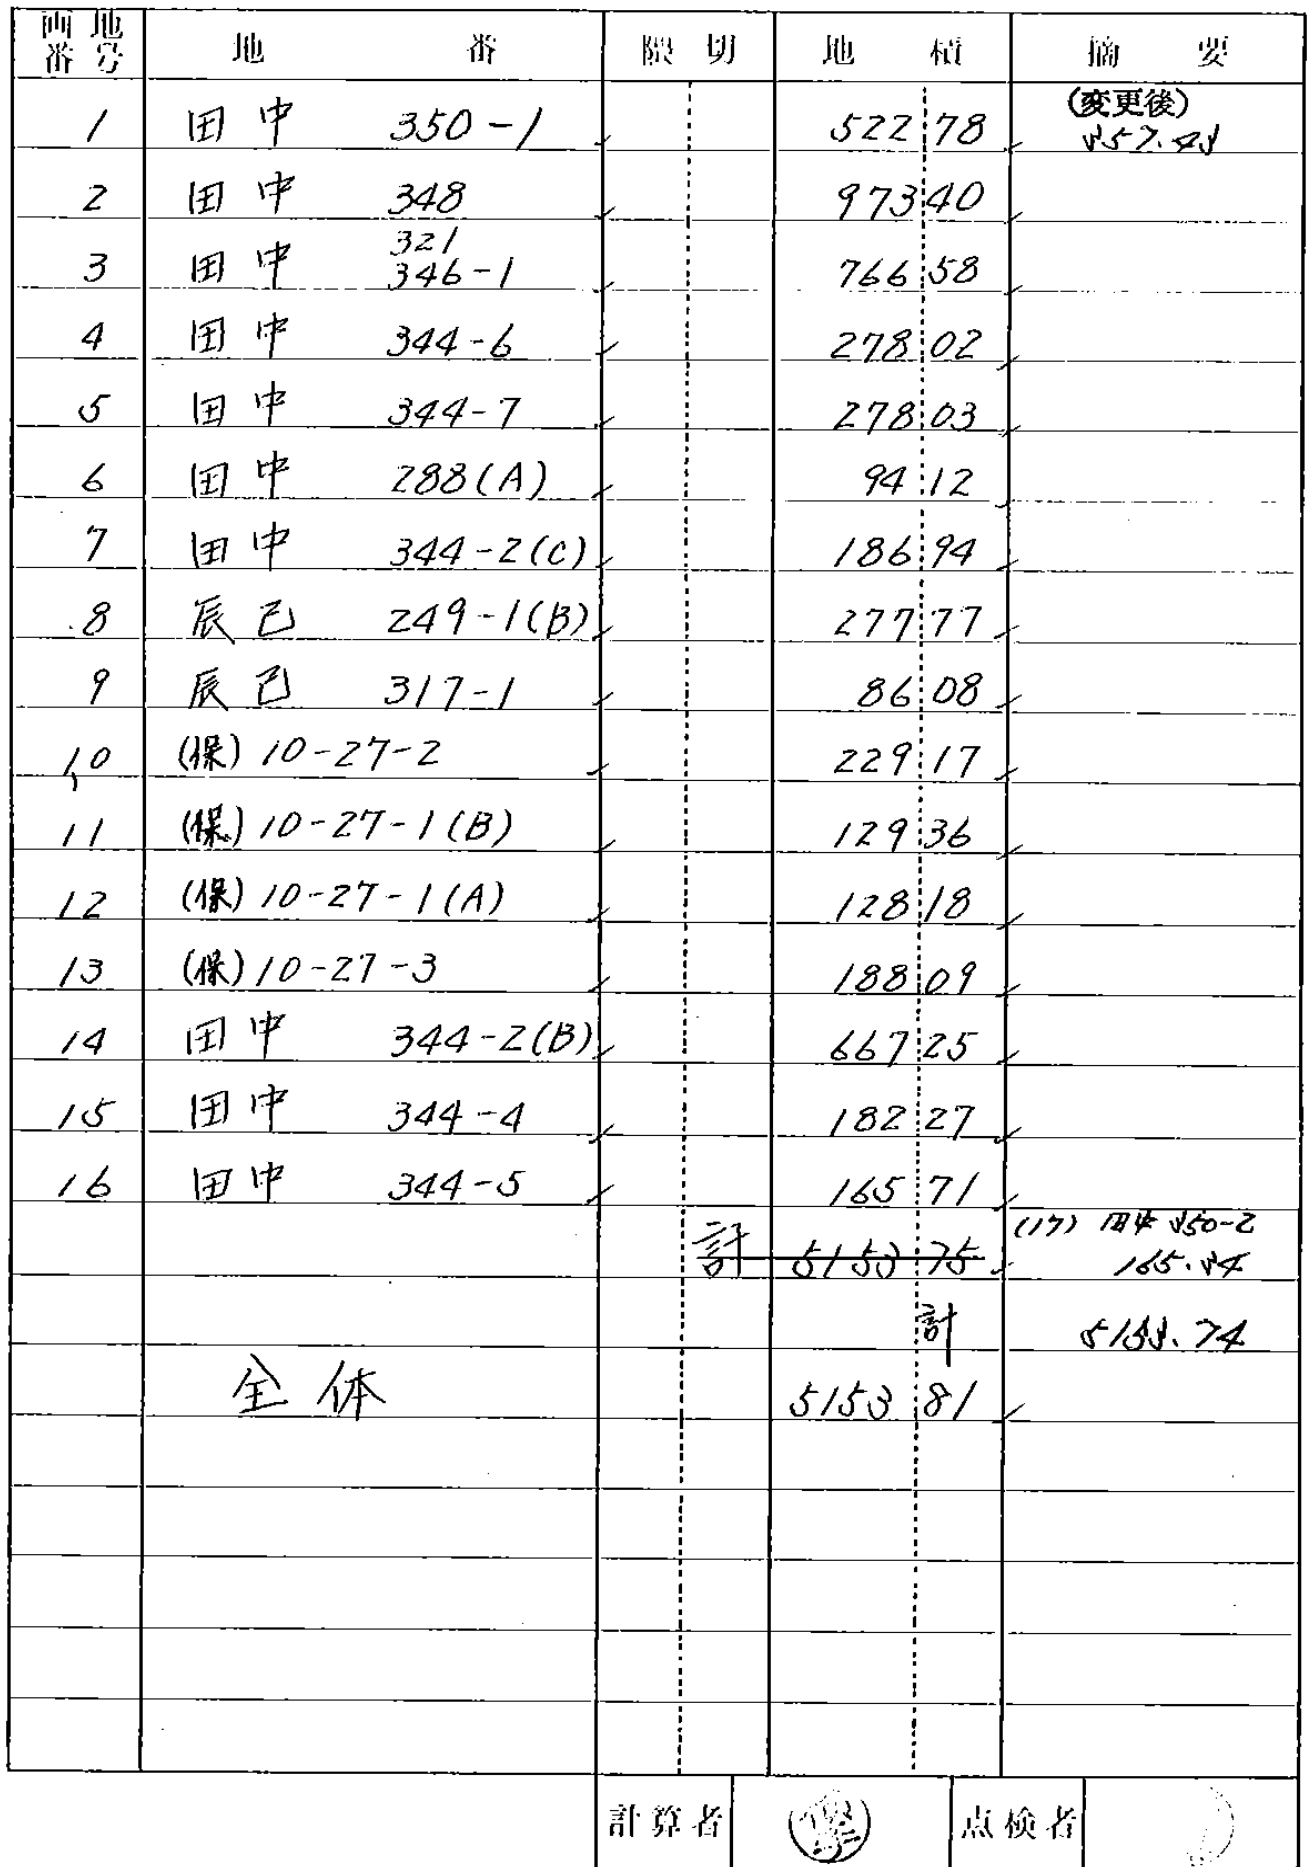 画地番号 地番 隈切 地積 摘要
1 田中 350-1 522 78 (変更後) 357.43
2 田中 348 973 40
3 田中 321 346-1 766 58
4 田中 344-6 278 02
5 田中 344-7 278 03
6 田中 288(A) 94 12
7 田中 344-2(C) 186 94
8 辰己 249-1(B) 277 77
9 辰己 317-1 86 08
10 (保) 10-27-2 229 17
11 (保) 10-27-1(B) 129 36
12 (保) 10-27-1(A) 128 18
13 (保) 10-27-3 188 09
14 田中 344-2(B) 667 25
15 田中 344-4 182 27
16 田中 344-5 165 71
計 5153 75 (17) 田中 350-2 165.34
計 5153.74
全体 5153 81
計算者 点検者